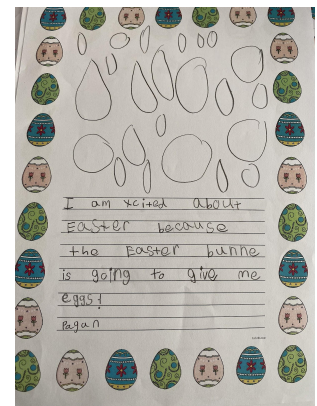 I am xcited about
Easter because
the Easter bunne
is going to give me
eggs!
Pagan